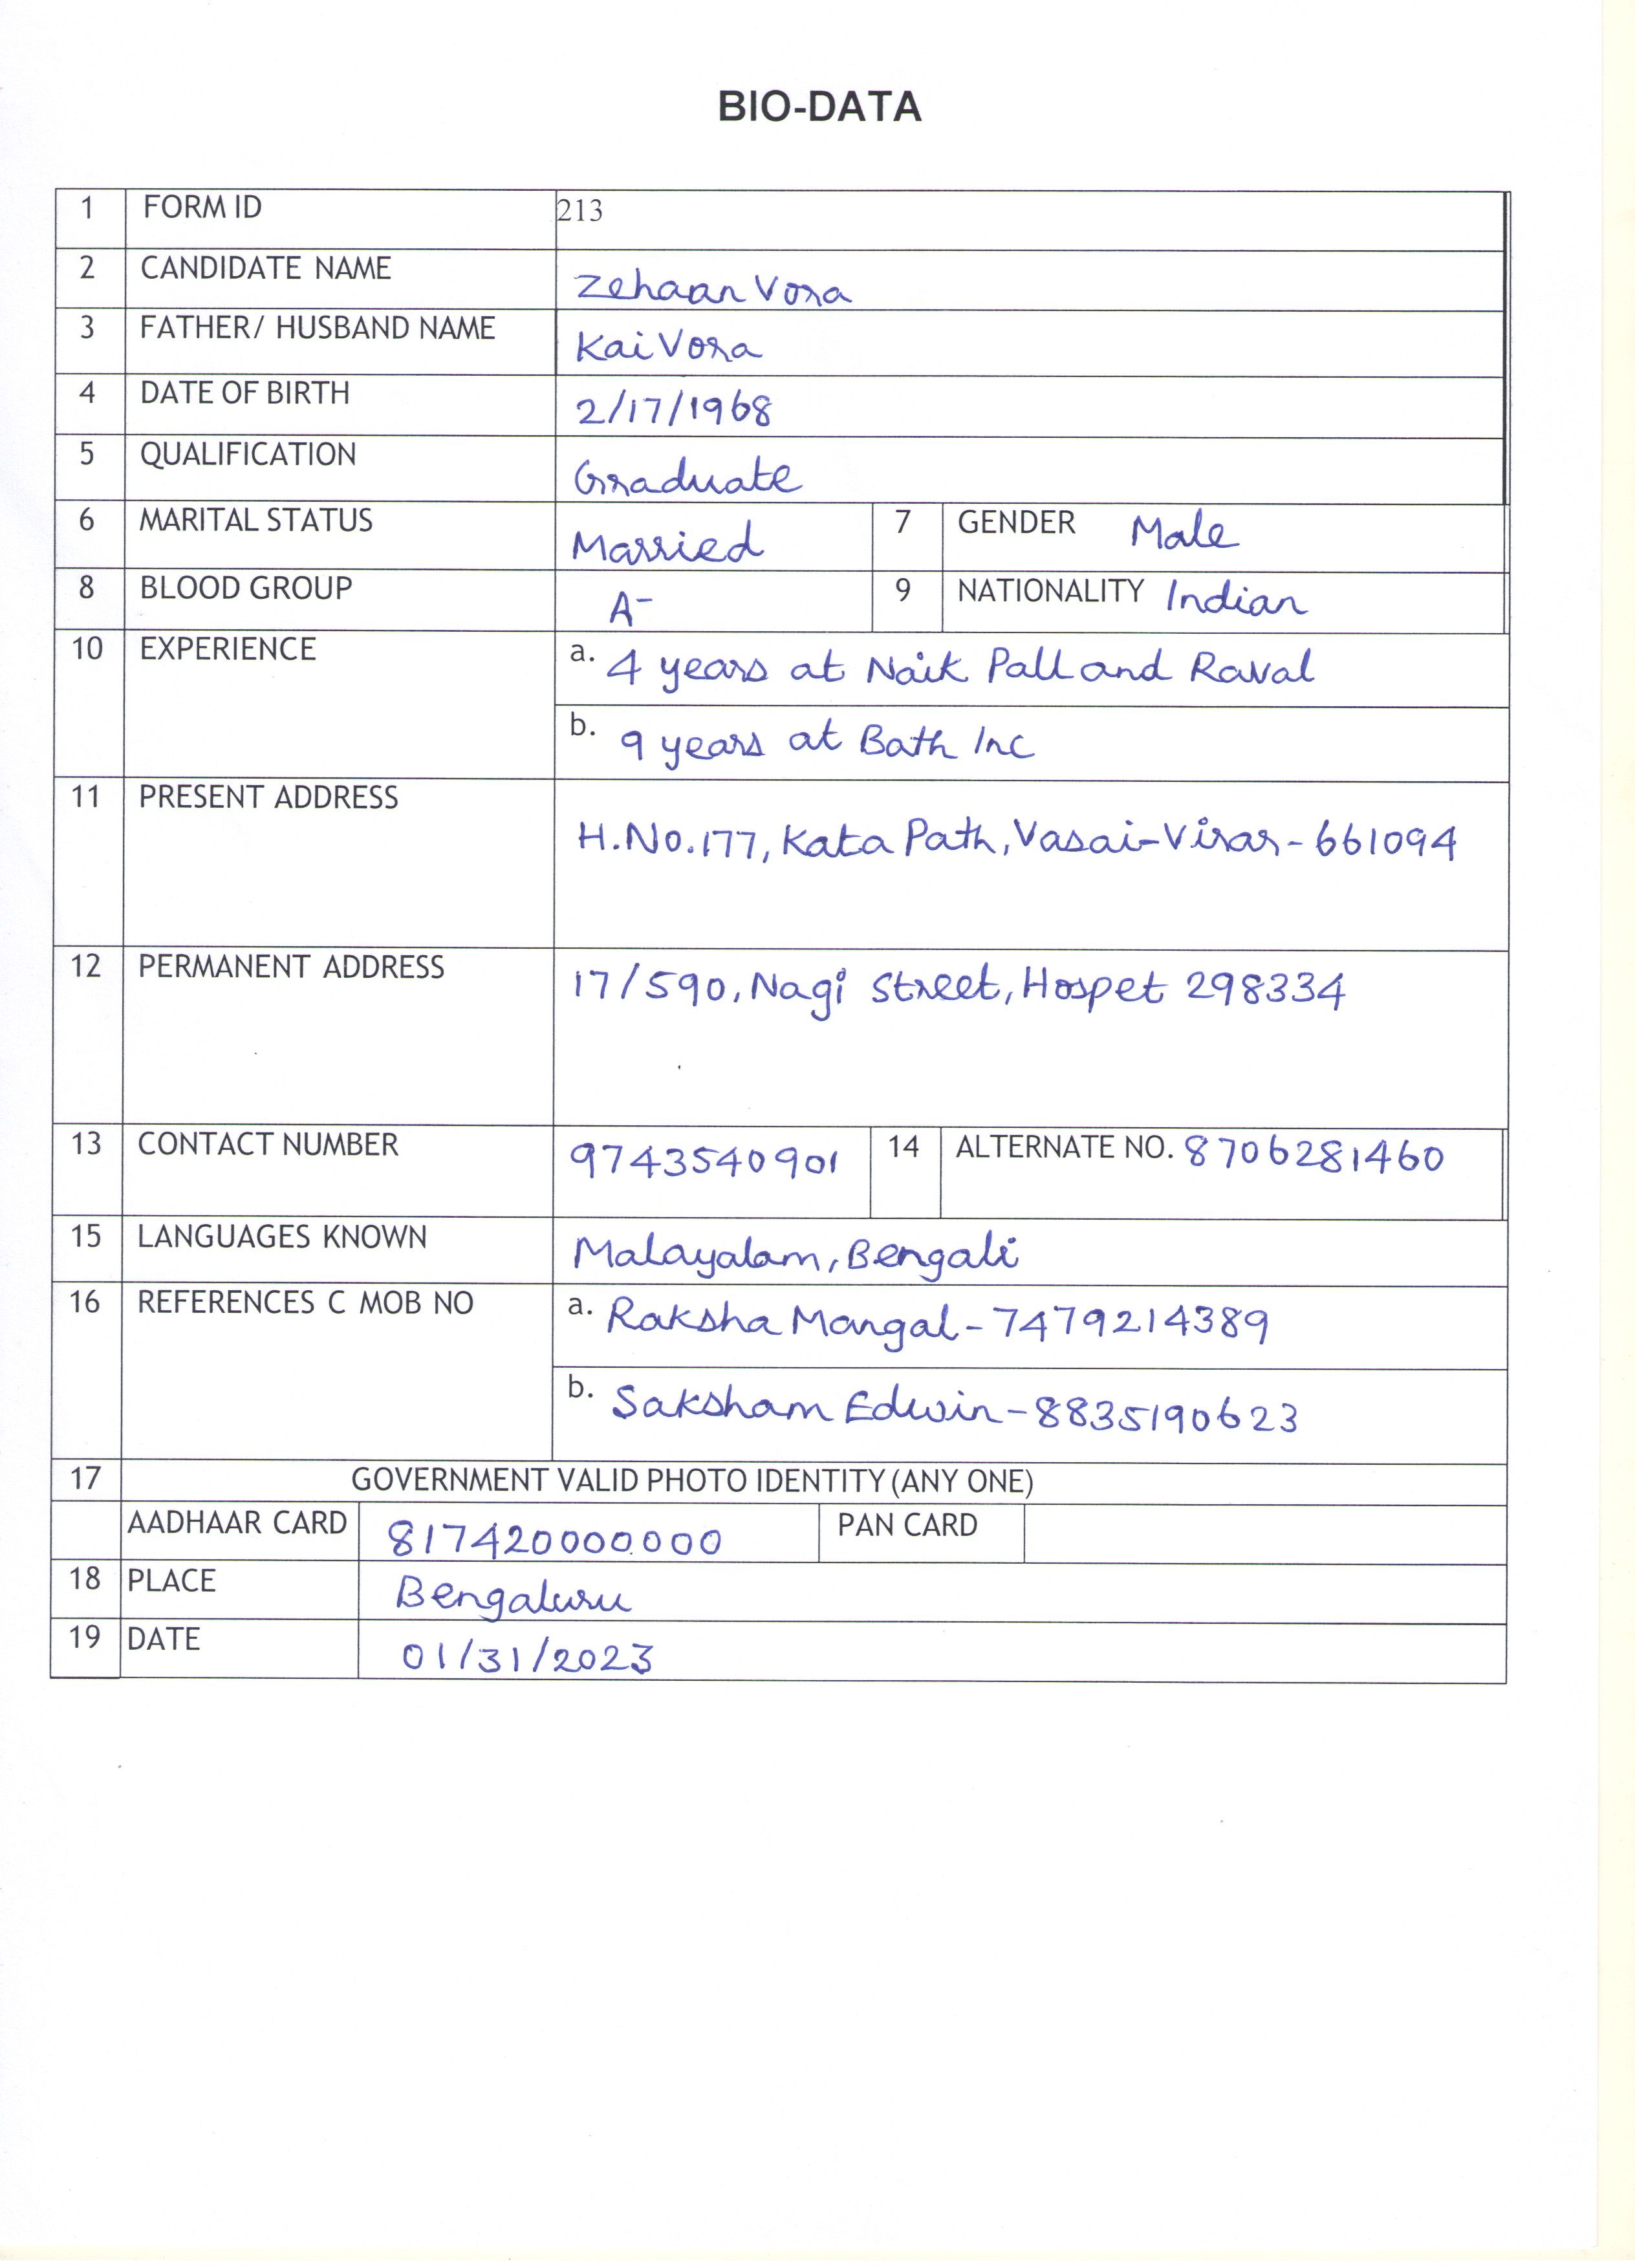 BIO-DATA
1 FORM ID 213
2 CANDIDATE NAME Zehaan Vora
3 FATHER/ HUSBAND NAME Kai Vora
4 DATE OF BIRTH 2/17/1968
5 QUALIFICATION Graduate
6 MARITAL STATUS Married 7 GENDER Male
8 BLOOD GROUP A- 9 NATIONALITY Indian
10 EXPERIENCE a. 4 years at Naik Pall and Raval
b. 9 years at Bath Inc
11 PRESENT ADDRESS H.No.177, Kata Path, Vasai-Virar-661094
12 PERMANENT ADDRESS 17/590, Nagi Street, Hospet 298334
13 CONTACT NUMBER 9743540901 14 ALTERNATE NO. 8706281460
15 LANGUAGES KNOWN Malayalam, Bengali
16 REFERENCES C MOB NO a. Raksha Mangal-7479214389
b. Saksham Edwin-8835190623
17 GOVERNMENT VALID PHOTO IDENTITY (ANY ONE)
AADHAAR CARD 817420000000 PAN CARD
18 PLACE Bengaluru
19 DATE 01/31/2023